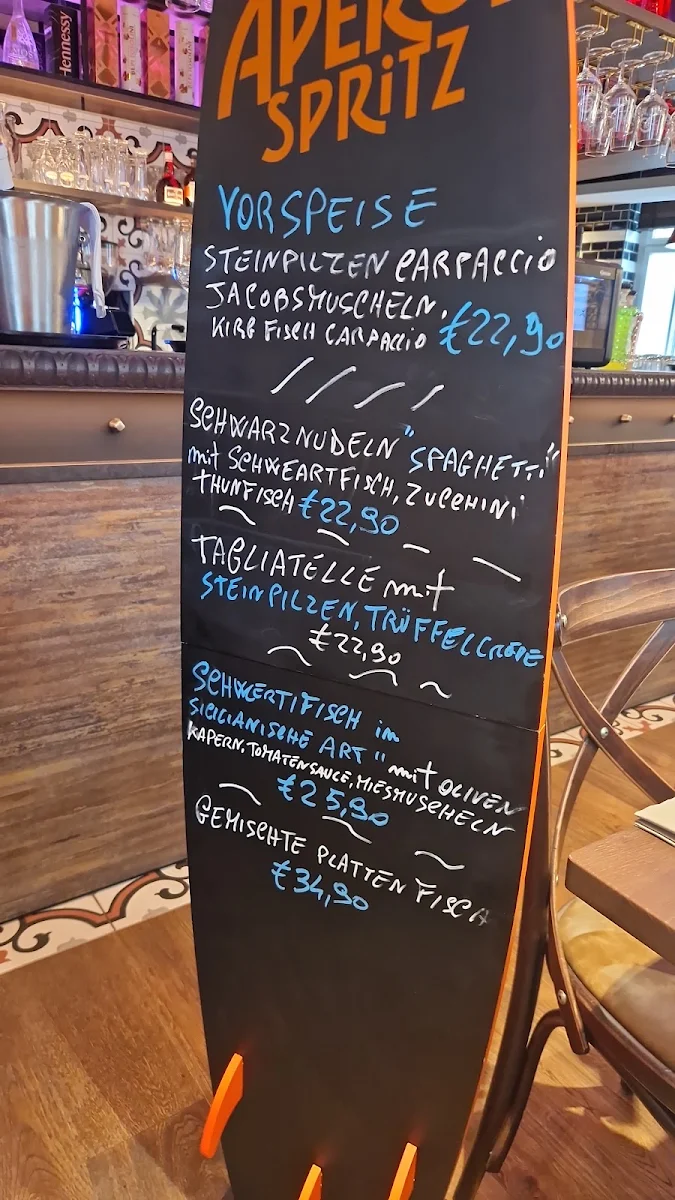 Hennessy
APEROL
SPRITZ
VORSPEISE
STEINPILZEN CARPACCIO
JACOBSMUSCHELN,
KIRB FISCH CARPACCIO €22,90
SCHWARZNUDELN "SPAGHETTI"
mit SCHWEARTFISCH, ZUCCHINI
THUNFISCH €22,90
TAGLIATELLE mit
STEINPILZEN, TRÜFFELCREME
€22,90
SCHWERTIFISCH im
SICILIANISCHE ART" mit OLIVEN
KAPERN, TOMATENSAUCE, MIESMUSCHELN
€25,90
GEMISCHTE PLATTEN FISCH
€34,90